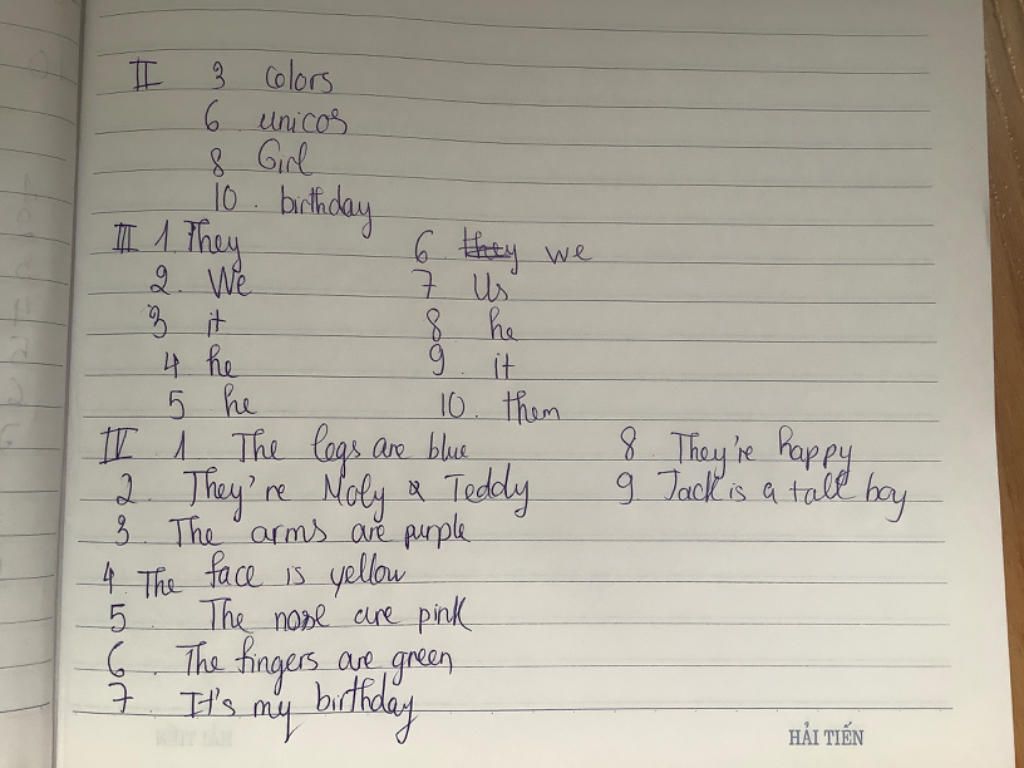 II 3 colors
6 unicos
8 Girl
10. birthday
III 1 They 6 they we
2. We 7 Us
3 it 8 he
4 he 9. it
5 he 10. them
IV 1 The legs are blue 8. They're happy
2. They're Moly & Teddy 9 Jack is a tall boy
3. The arms are purple
4 The face is yellow
5. The nose are pink
6. The fingers are green
7. It's my birthday
HẢI TIẾN